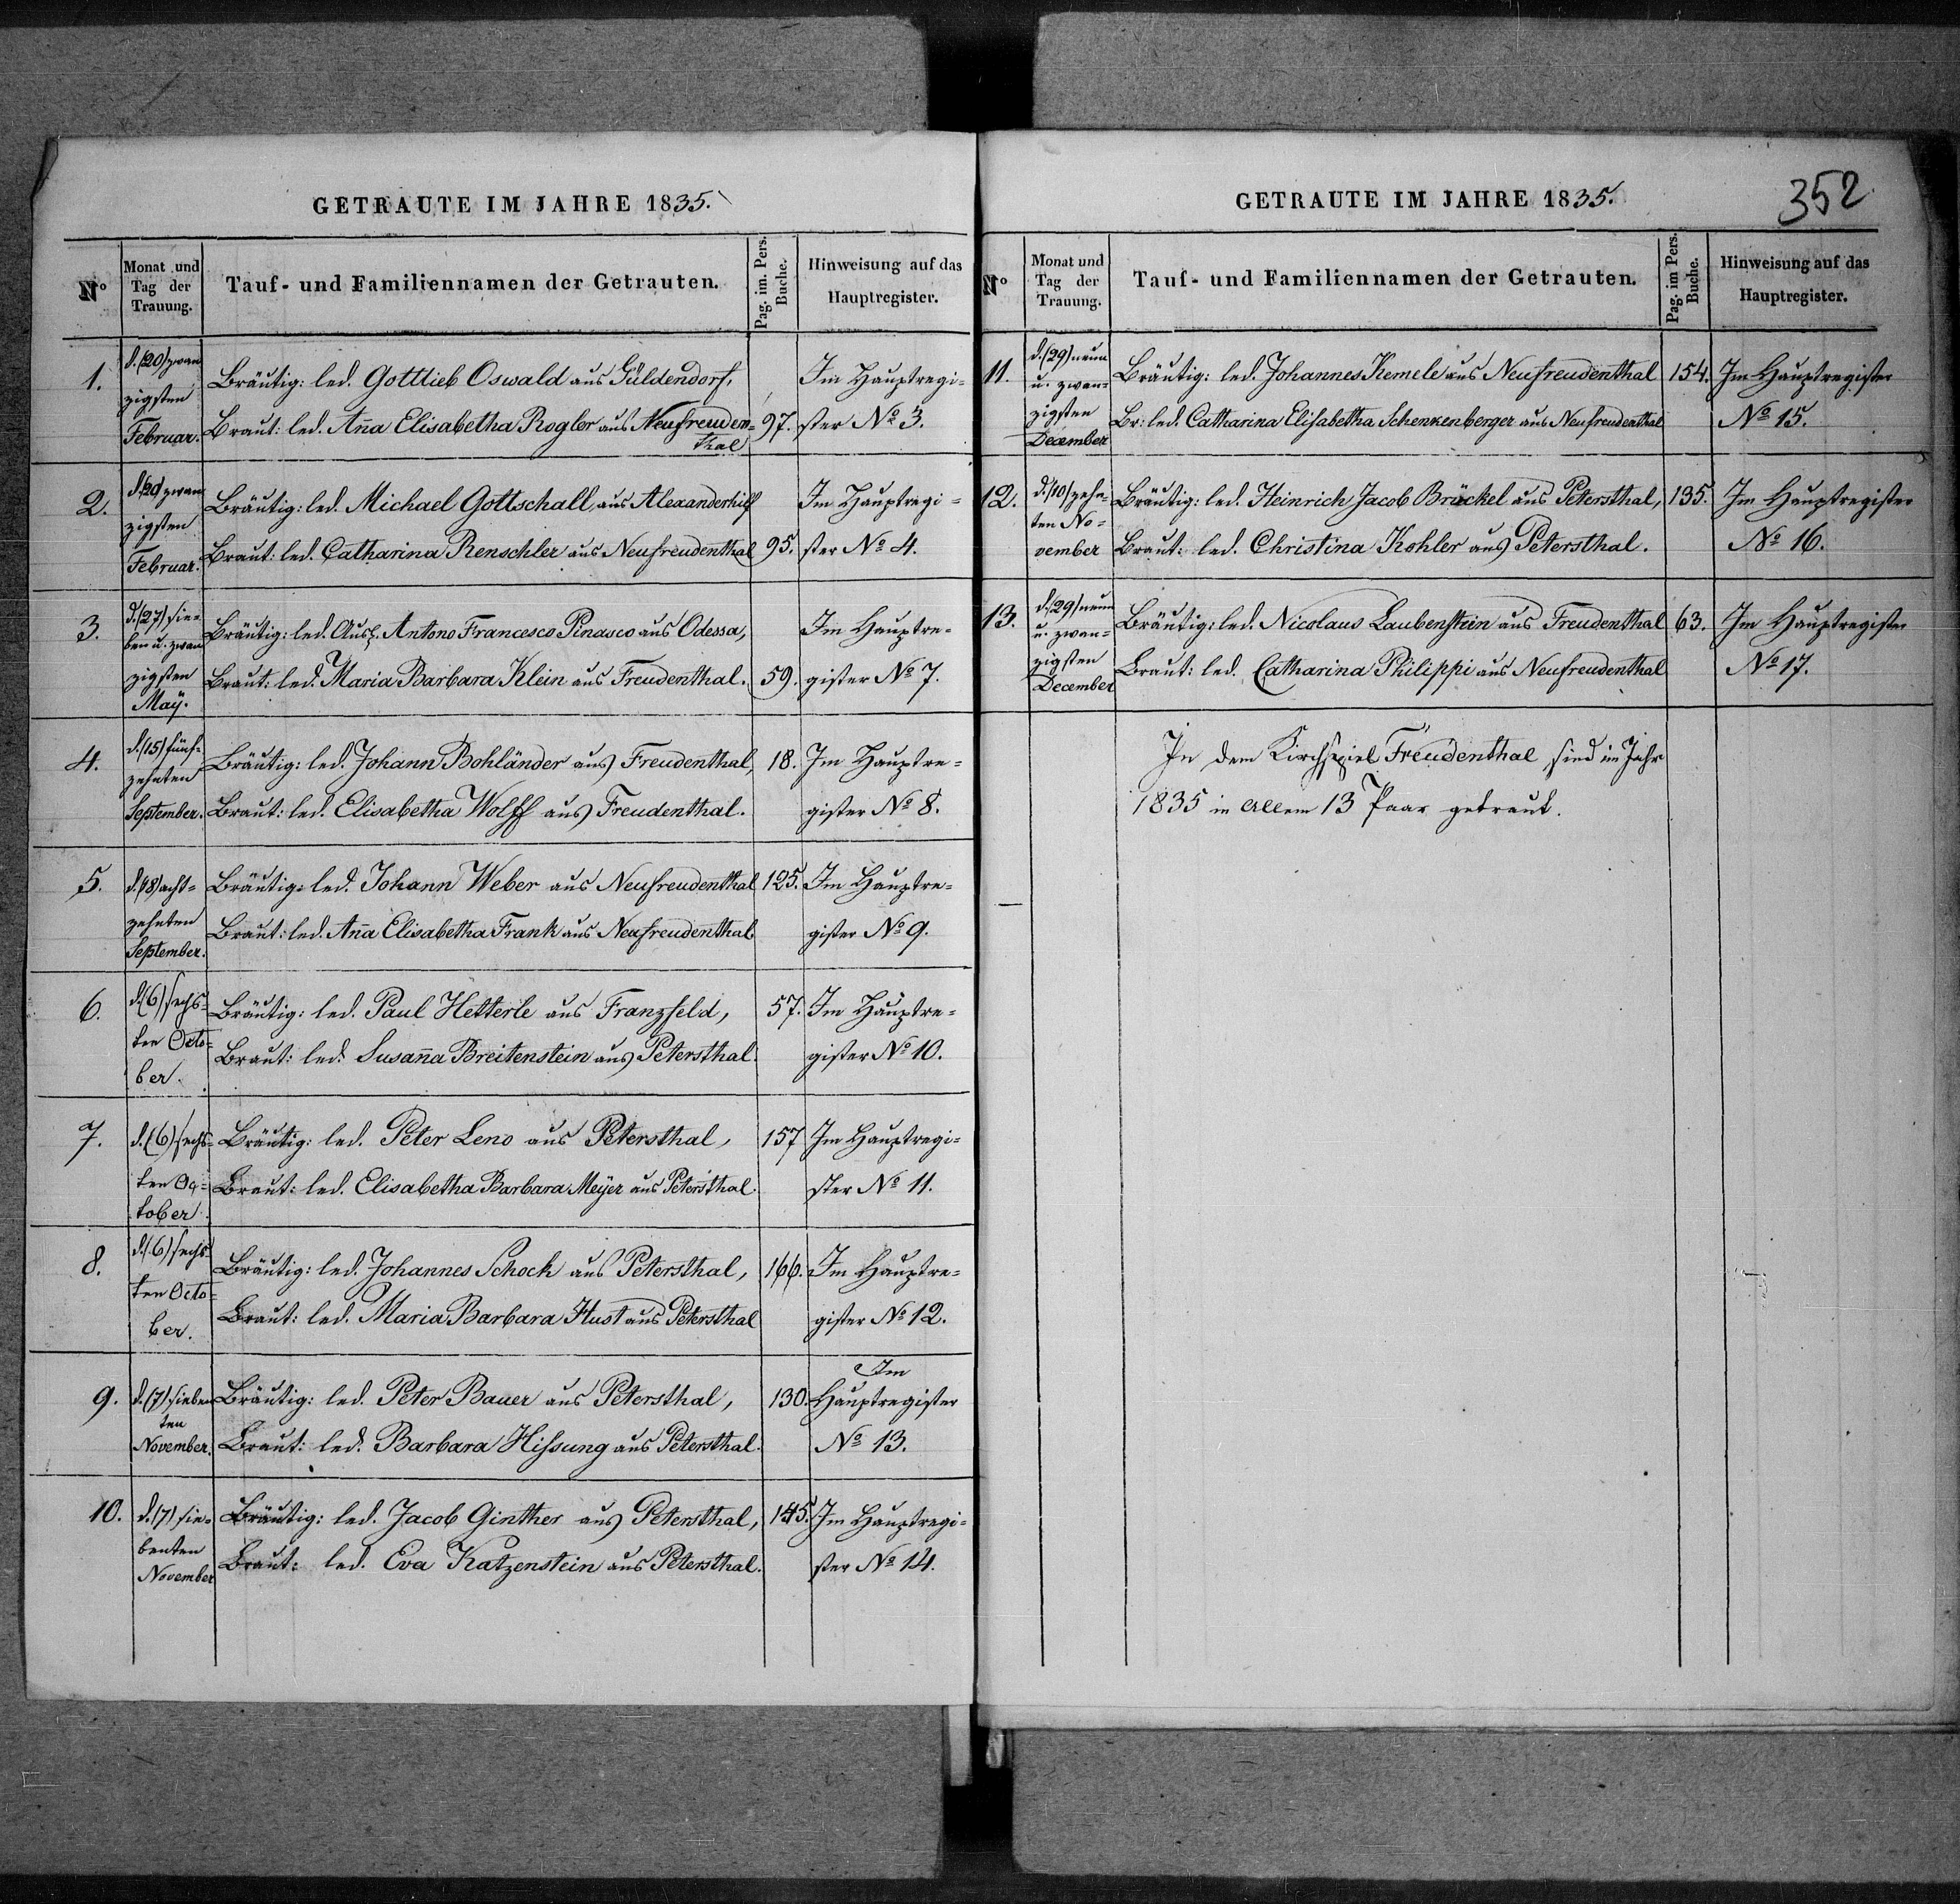 GETRAUTE IM JAHRE 1835.
N° Monat und Tag der Trauung. Tauf- und Familiennamen der Getrauten. Pag. im. Pers. Buche. Hinweisung auf das Hauptregister.
1. d. (20) zwan
zigsten
Februar.
Bräutig: led. Gottlieb Oswald aus Güldendorf,
Braut: led. Anna Elisabetha Rogler aus Neufreuden=
thal
97.
Im Hauptregi=
ster No 3.
2. d. (20) zwan
zigsten
Februar.
Bräutig: led. Michael Gottschall, aus Alexanderhilf
Braut: led. Catharina Renschler aus Neufreudenthal
95.
Im Hauptregi=
ster No 4.
3. d. (27) sie=
ben u. zwan
zigsten
Maÿ.
Bräutig: led. Antono Francesco Pinasco aus Odessa,
Braut: led. Maria Barbara Klein aus Freudenthal.
59.
Im Hauptre=
gister No 7.
4. d. (15) fünf=
zehnten
September.
Bräutig: led. Johann Bohländer aus Freudenthal,
Braut: led. Elisabetha Wolff aus Freudenthal.
18.
Im Hauptre=
gister No 8.
5. d. (18) acht=
zehnten
September.
Bräutig: led. Johann Weber aus Neufreudenthal
Braut: led. Anna Elisabetha Frank aus Neufreudenthal.
125.
Im Hauptre=
gister No 9.
6. d. (6) sechs=
ten Octo=
ber.
Bräutig: led. Paul Hetterle aus Franzfeld,
Braut: led. Susanna Breitenstein aus Petersthal.
57.
Im Hauptre=
gister No 10.
7. d. (6) sechs=
ten Oc=
tober.
Bräutig: led. Peter Leno aus Petersthal,
Braut: led. Elisabetha Barbara Meÿer aus Petersthal.
157
Im Hauptregi=
ster No 11.
8. d. (6) sechs
ten Octo=
ber.
Bräutig: led. Johannes Schock aus Petersthal,
Braut: led. Maria Barbara Hust aus Petersthal
166.
Im Hauptre=
gister No 12.
9. d. (7) sieben
ten
November.
Bräutig: led. Peter Bauer aus Petersthal,
Braut: led. Barbara Hissung aus Petersthal.
130.
Im
Hauptregister
No 13.
10. d. (7) sie=
benten
November
Bräutig: led. Jacob Ginther aus Petersthal,
Braut: led. Eva Katzenstein aus Petersthal.
145.
Im Hauptregi=
ster No 14.
352
GETRAUTE IM JAHRE 1835.
N° Monat und Tag der Trauung. Tauf- und Familiennamen der Getrauten. Pag. im Pers. Buche. Hinweisung auf das Hauptregister.
11. d. (29) neun
u. zwan=
zigsten
December
Bräutig: led. Johannes Kemele aus Neufreudenthal
Br: led. Catharina Elisabetha Schenkenberger aus Neufreudenthal
154.
Im Hauptregister
No 15.
12. d. (10) zehn=
ten No=
vember
Bräutig: led. Heinrich Jacob Bräckel aus Petersthal,
Braut: led. Christina Kohler aus Petersthal.
135.
Im Hauptregister
No 16.
13. d. (29) neun
u. zwan=
zigsten
December
Bräutig: led. Nicolaus Laubenstein aus Freudenthal
Braut: led. Catharina Philippi aus Neufreudenthal
63.
Im Hauptregister
No 17.
In dem Kirchspiel Freudenthal sind im Jahr
1835 in Allem 13 Paar getraut.